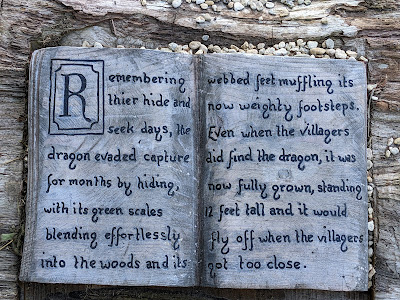 Remembering
thier hide and
seek days, the
dragon evaded capture
for months by hiding,
with its green scales
blending effortlessly
into the woods and its
webbed feet muffling its
now weighty footsteps.
Even when the villagers
did find the dragon, it was
now fully grown, standing
12 feet tall and it would
fly off when the villagers
got too close.